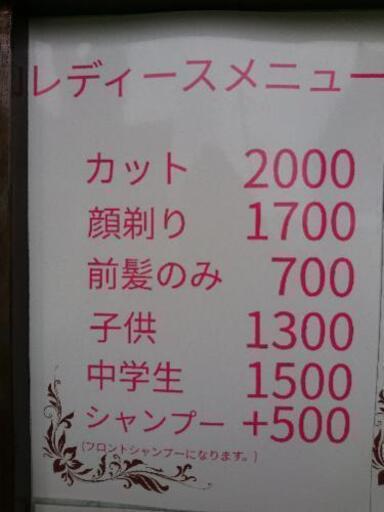 レディースメニュー
カット 2000
顔剃り 1700
前髪のみ 700
子供 1300
中学生 1500
シャンプー +500
(フロントシャンプーになります。)